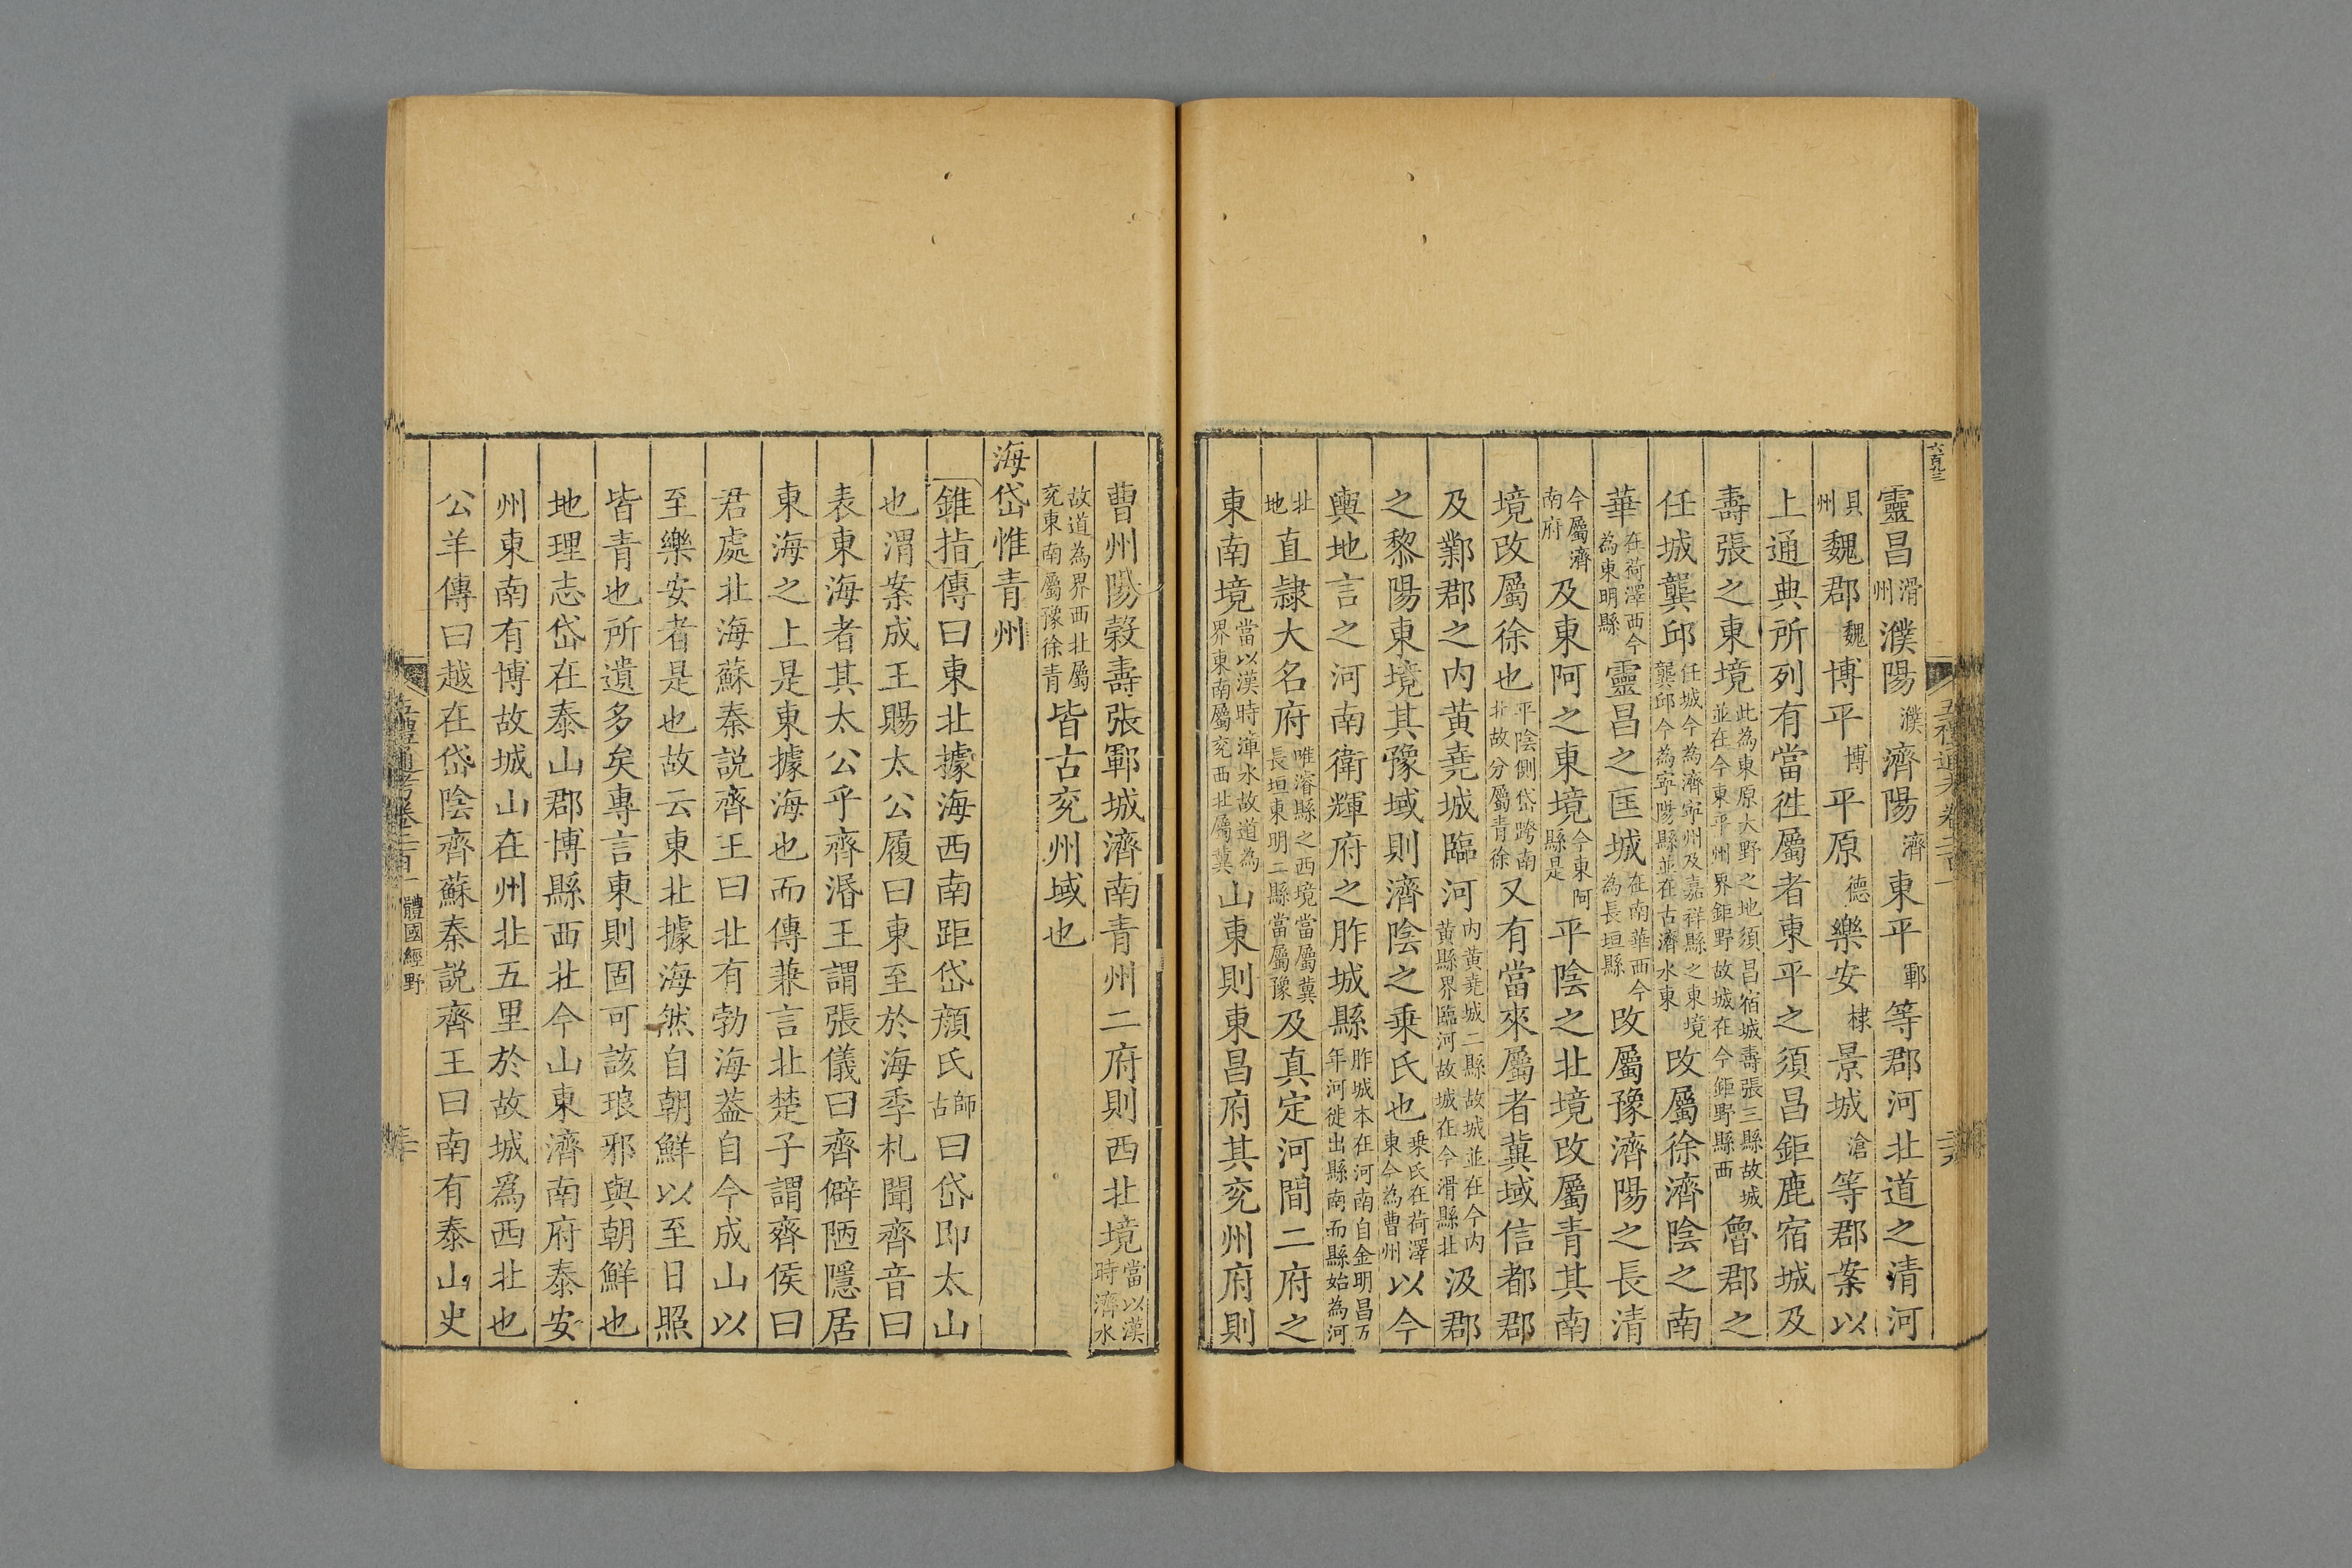 靈昌滑州濮陽濮濟陽濟東平鄆等郡河北道之清河
貝州魏郡魏博平博平原德樂安棣景城滄等郡案以
上通典所列有當徃屬者東平之須昌鉅鹿宿城及
壽張之東境此為東原大野之地須昌宿城壽張三縣故城並在今東平州界鉅野故城在今鉅野縣西魯郡之
任城龔邱任城今為濟寜州及嘉祥縣之東境龔邱今為寜陽縣並在古濟水東改屬徐濟隂之南
華在荷澤西今為東明縣靈昌之匡城在南華西今為長垣縣改屬豫濟陽之長清
今屬濟南府及東阿之東境今東阿縣是平隂之北境改屬青其南
境改屬徐也平隂側岱跨南北故分屬青徐又有當來屬者冀域信都郡
及鄴郡之内黄堯城臨河内黄堯城二縣故城並在今内黄縣界臨河故城在今滑縣北汲郡
之黎陽東境其豫域則濟隂之乗氏也乗氏在荷澤東今為曹州以今
輿地言之河南衛輝府之胙城縣胙城本在河南自金明昌万年河徙出縣南而縣始為河
北地直隷大名府唯濬縣之西境當屬冀長垣東明二縣當屬豫及真定河間二府之
東南境當以漢時滹水故道為界東南屬兖西北屬冀山東則東昌府其兖州府則
曹州陽榖壽張鄆城濟南青州二府則西北境當以漢時濟水
故道為界西北屬兖東南屬豫徐青皆古兖州域也
海岱惟青州
錐指傳曰東北據海西南距岱顔氏師古曰岱即太山
也渭案成王賜太公履曰東至於海季札聞齊音曰
表東海者其太公乎齊湣王謂張儀曰齊僻陋隱居
東海之上是東據海也而傳兼言北楚子謂齊侯曰
君處北海蘇秦説齊王曰北有勃海葢自今成山以
至樂安者是也故云東北據海然自朝鮮以至日照
皆青也所遺多矣專言東則固可該琅邪與朝鮮也
地理志岱在泰山郡博縣西北今山東濟南府泰安
州東南有博故城山在州北五里於故城爲西北也
公羊傳曰越在岱隂齊蘇秦説齊王曰南有泰山史
體國經野